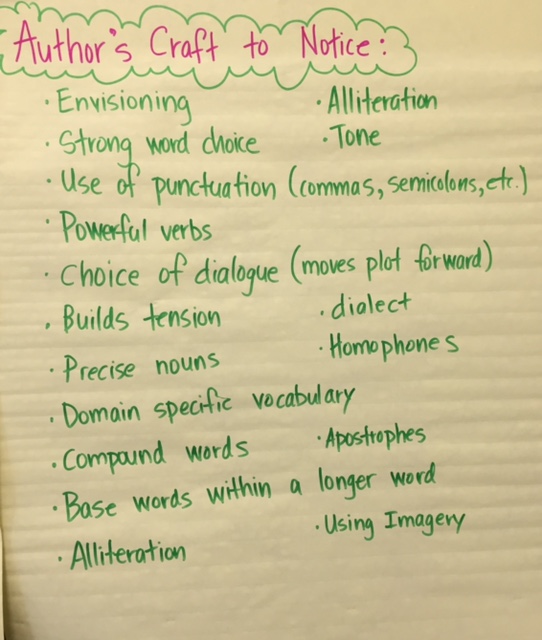 Author's Craft to Notice:
· Envisioning · Alliteration
· Strong word choice · Tone
· Use of punctuation (commas, semicolons, etc.)
· Powerful verbs
· Choice of dialogue (moves plot forward)
· Builds tension · dialect
· Precise nouns · Homophones
· Domain specific vocabulary
· Compound words · Apostrophes
· Base words within a longer word
· Alliteration · Using Imagery